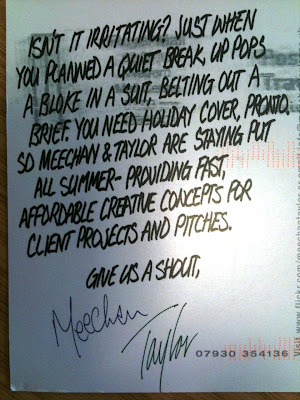 ISN'T IT IRRITATING? JUST WHEN
YOU PLANNED A QUIET BREAK, UP POPS
A BLOKE IN A SUIT, BELTING OUT A
BRIEF. YOU NEED HOLIDAY COVER, PRONTO.
SO MEECHAN & TAYLOR ARE STAYING PUT
ALL SUMMER - PROVIDING FAST,
AFFORDABLE CREATIVE CONCEPTS FOR
CLIENT PROJECTS AND PITCHES.
GIVE US A SHOUT,
Meechan
Taylor
07930 354136
Visit www.flickr.com/